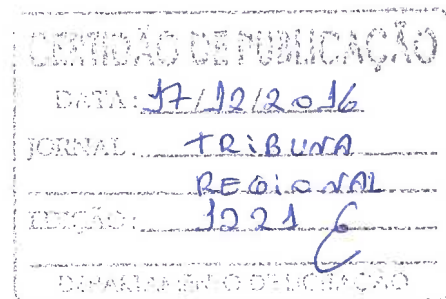 CERTIDÃO DE PUBLICAÇÃO
DATA: 17/12/2016
JORNAL: TRIBUNA
REGIONAL
EDIÇÃO: 1221
DEPARTAMENTO DE LICITAÇÃO